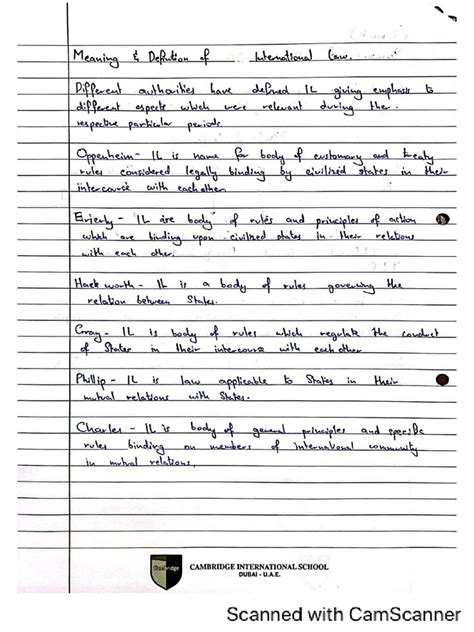 Meaning & Definition of International Law.
Different authorities have defined IL giving emphasis to
different aspects which were relevant during the
respective particular periods.
Oppenheim - IL is name for body of customary and treaty
rules considered legally binding by civilized states in their
intercourse with each other
Brierly - IL are body of rules and principles of action
which are binding upon civilized states in their relations
with each other.
Hackworth - IL is a body of rules governing the
relation between States.
Gray - IL is body of rules which regulate the conduct
of States in their intercourse with each other
Phillip - IL is law applicable to States in their
mutual relations with States.
Charles - IL is body of general principles and specific
rules binding on members of international community
in mutual relations.
Cambridge
CAMBRIDGE INTERNATIONAL SCHOOL
DUBAI - U.A.E.
Scanned with CamScanner